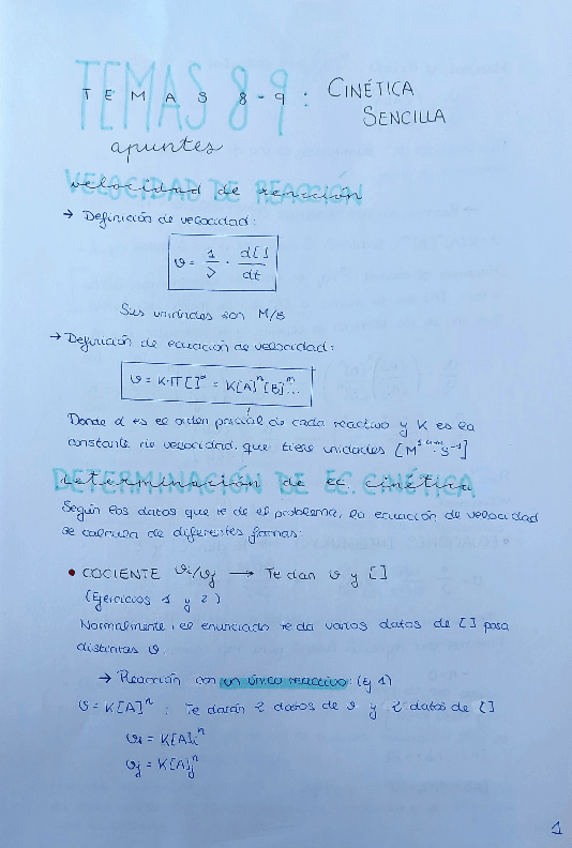 TEMAS 8-9: CINÉTICA
SENCILLA
apuntes
velocidad de reacción
→ Definición de velocidad:
v = 1/ν · d[]/dt
Sus unidades son M/s
→ Definición de ecuación de velocidad:
v = K·Π[]^α = K[A]^n[B]^m...
Donde α es el orden parcial de cada reactivo y K es la
constante de velocidad, que tiene unidades
determinación de ec. cinética
Según los datos que te de el problema, la ecuación de velocidad
se calcula de diferentes formas:
• COCIENTE vi/vj → Te dan v y []
(Ejercicios 1 y 2)
Normalmente, el enunciado te da varios datos de [] para
distintas v.
→ Reacción con un único reactivo: (ej 1)
v = K[A]^n : Te darán 2 datos de v y 2 datos de []
vi = K[A]i^n
vj = K[A]j^n
1